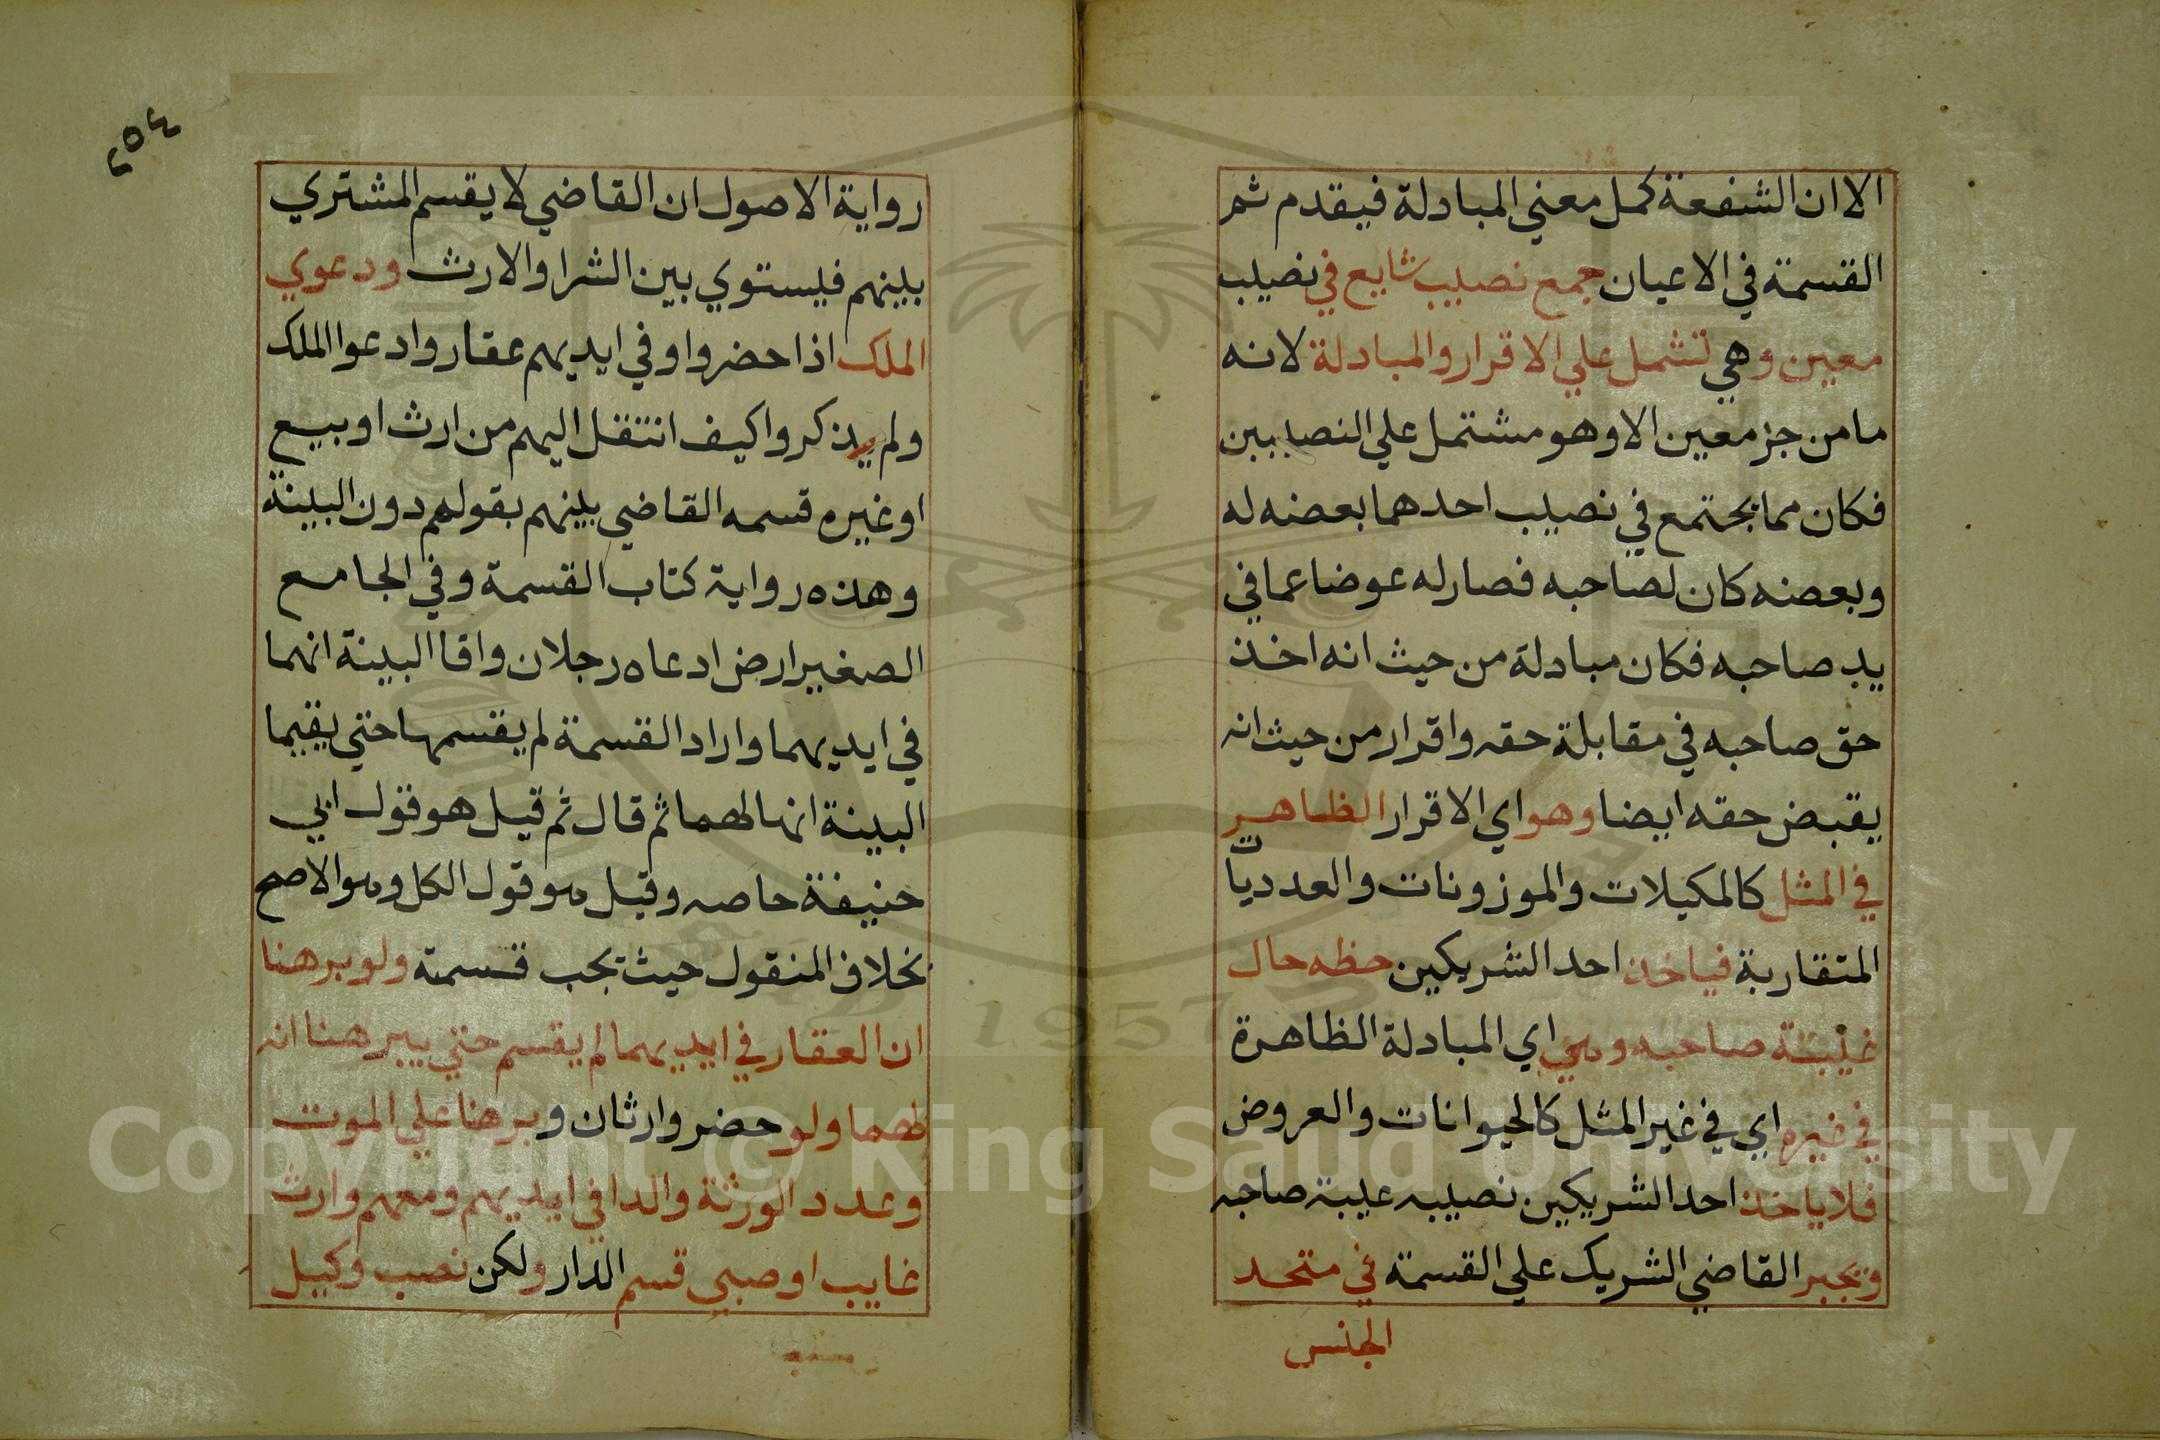 الا ان الشفعة كمل معني المبادلة فيقدم ثم
القسمة في الاعيان جمع نصيب شايع في نصيب
معين وهي تشمل علي الاقرار والمبادلة لانه
ما من جز معين الا وهو مشتمل علي النصيبين
فكان مما يجتمع في نصيب احدهما بعضه له
وبعضه كان لصاحبه فصار له عوضا عما في
يد صاحبه فكان مبادلة من حيث انه اخذ
حق صاحبه في مقابلة حقه واقرار من حيث انه
يقبض حقه ايضا وهو اي الاقرار الظاهر
في المثل كالمكيلات والموزونات والعدديات
المتقاربة فياخذ احد الشريكين حظه حال
غيبة صاحبه وهي اي المبادلة الظاهرة
في غيره اي في غير المثل كالحيوانات والعروض
فلا ياخذ احد الشريكين نصيبه غيبة صاحبه
ويجبر القاضي الشريك علي القسمة في متحد
الجنس
٢٥٤
رواية الاصول ان القاضي لا يقسم المشتري
بينهم فيستوي بين الشرا والارث ودعوي
الملك اذا حضروا وفي ايديهم عقار وادعوا الملك
ولم يذكروا كيف انتقل اليهم من ارث او بيع
او غيره قسمه القاضي بينهم بقولهم دون البينة
وهذه رواية كتاب القسمة وفي الجامع
الصغير ارض ادعاه رجلان واقا البينة انهما
في ايديهما واراد القسمة لم يقسمها حتي يقيما
البينة انها لهما ثم قال ثم قيل هو قول ابي
حنيفة خاصه وقيل هو قول الكل وهو الاصح
بخلاف المنقول حيث تجب قسمته ولو برهنا
ان العقار في ايديهما لم يقسم حتي يبرهنا انه
لهما ولو حضر وارثان وبرهنا علي الموت
وعدد الورثة والدا في ايديهم ومعهم وارث
غايب او صبي قسم الدار ولكن نصب وكيل
Copyright © King Saud University
1957